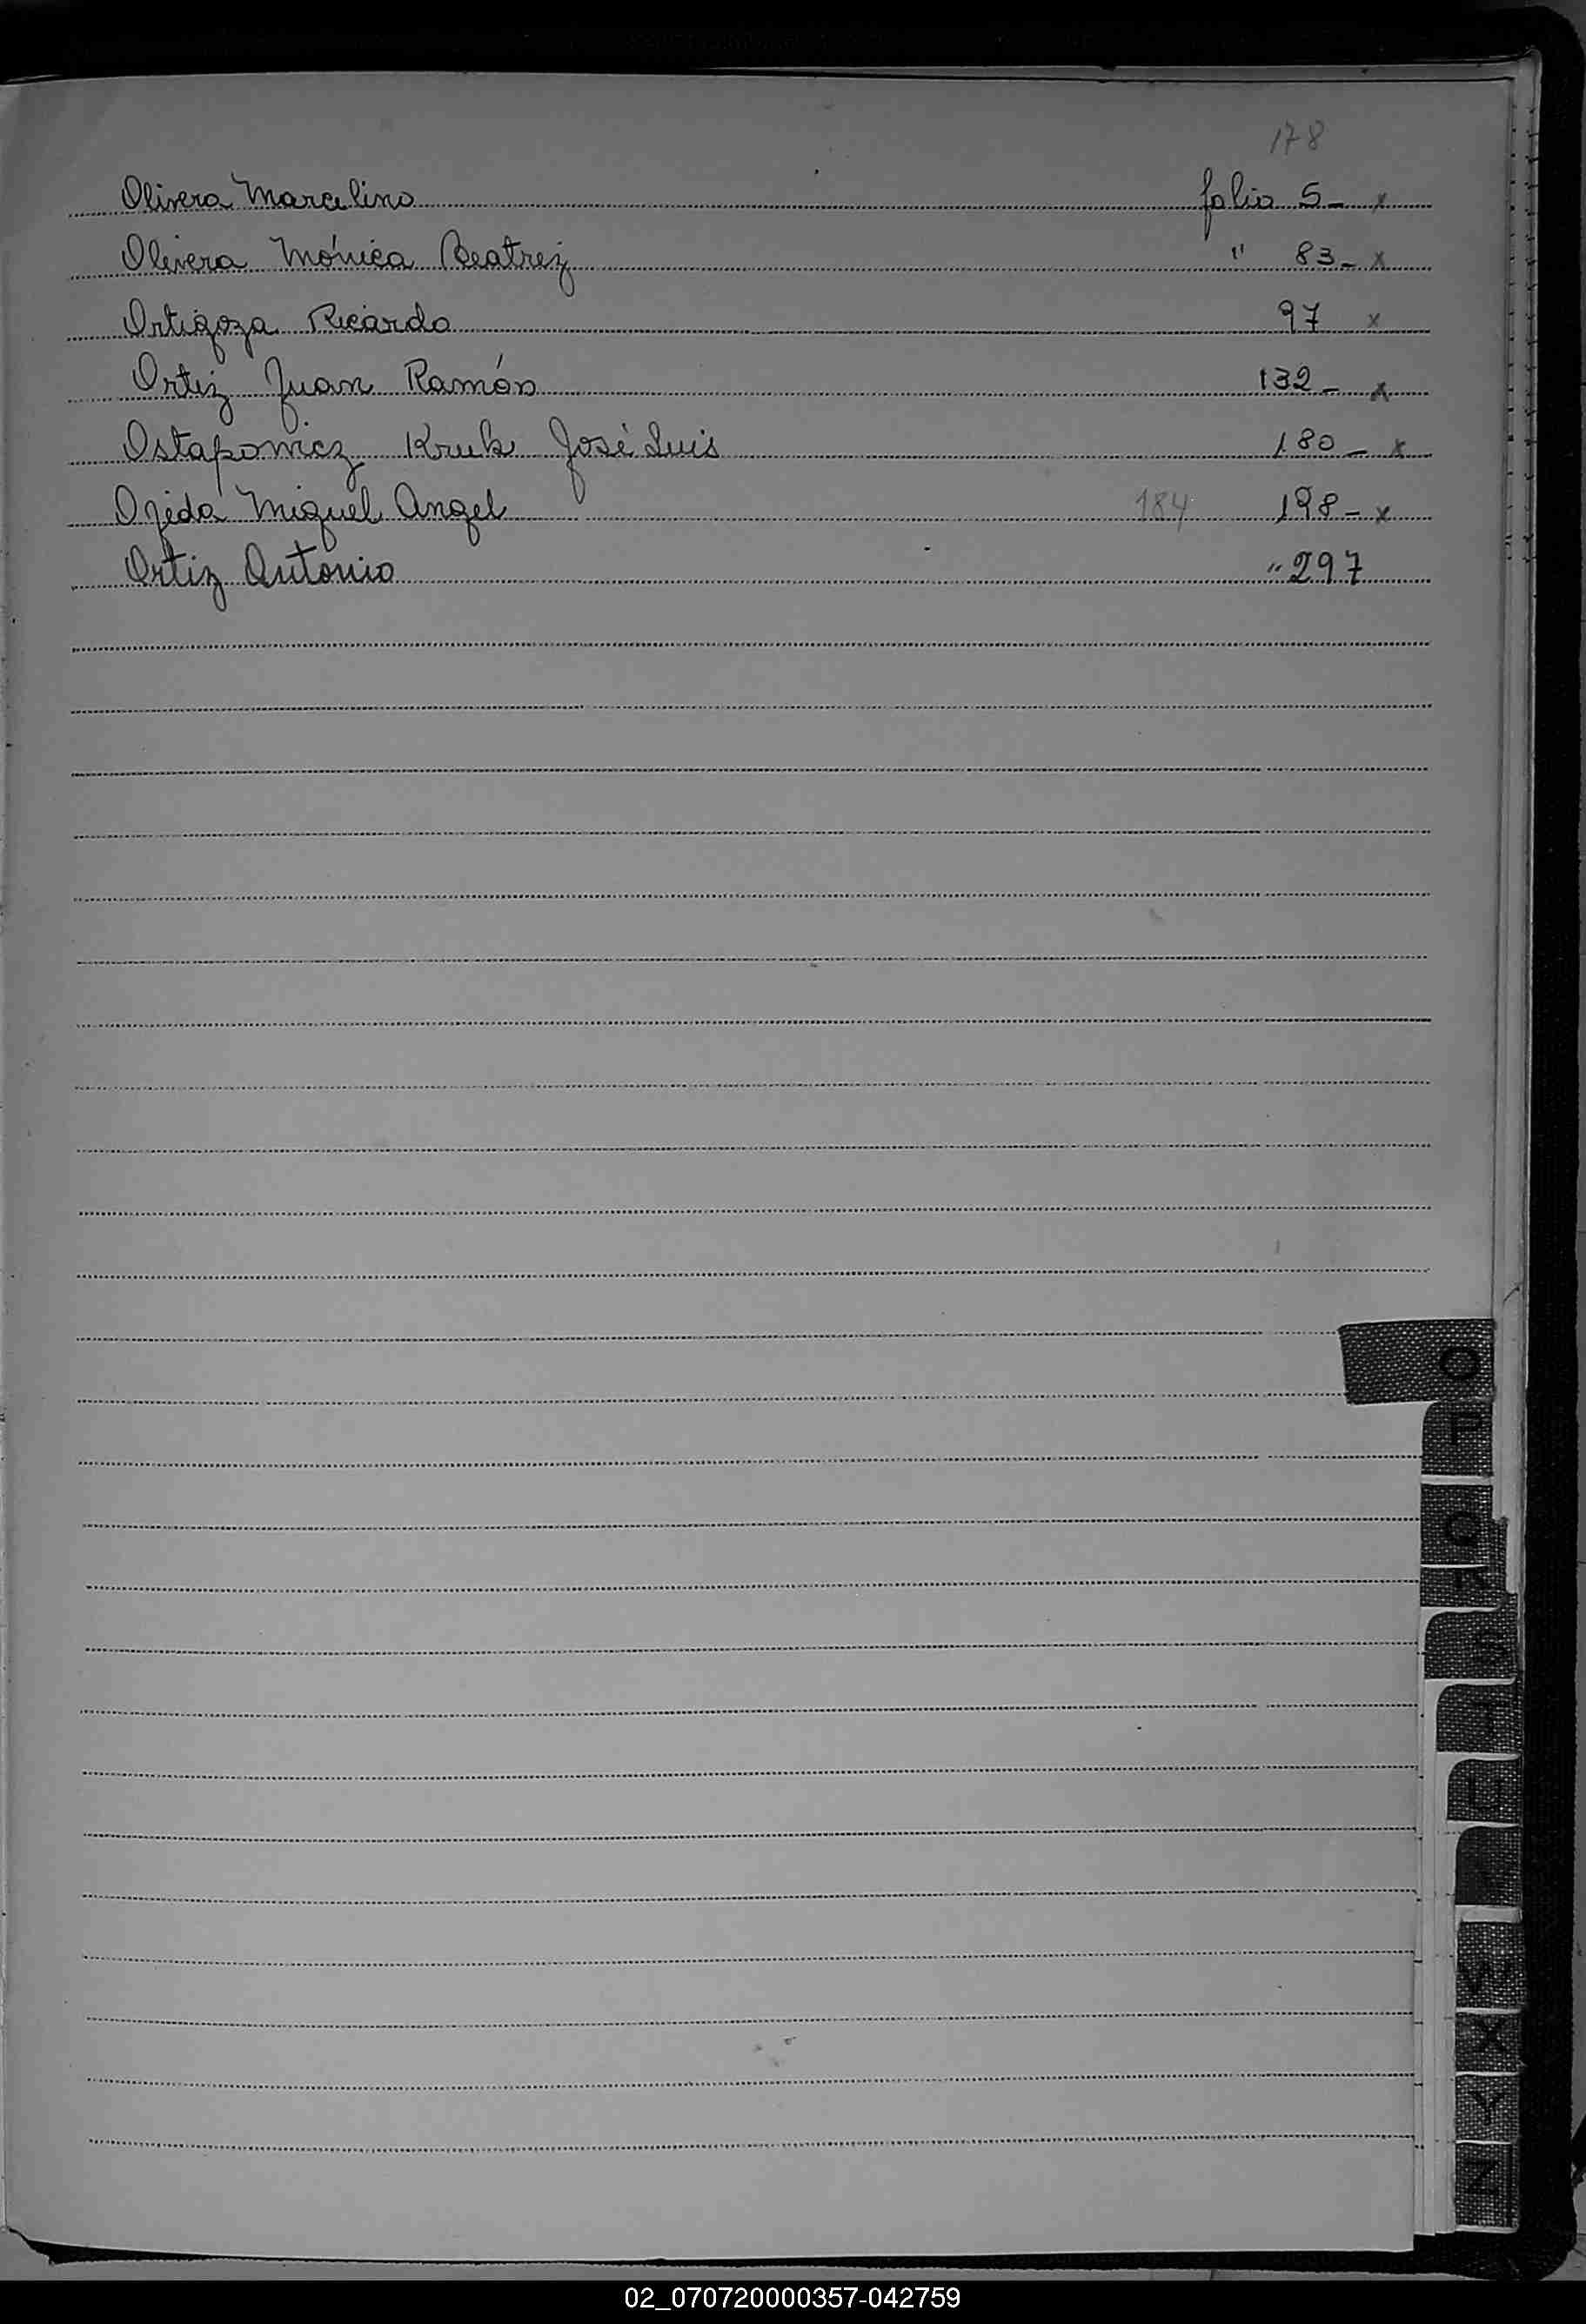 178
Olivera Marcelino folio 5- x
Olivera Mónica Beatriz " 83- x
Ortigoza Ricardo 97 x
Ortiz Juan Ramón 132- x
Ostapowicz Kruk José Luis 180- x
Ojeda Miguel Angel 184 198- x
Ortiz Antonio " 297
O
P
Q
R
S
T
U
W
X
Y
Z
02_070720000357-042759